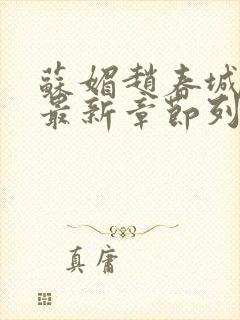 蘇媚趙春城
最新章節列
真庸